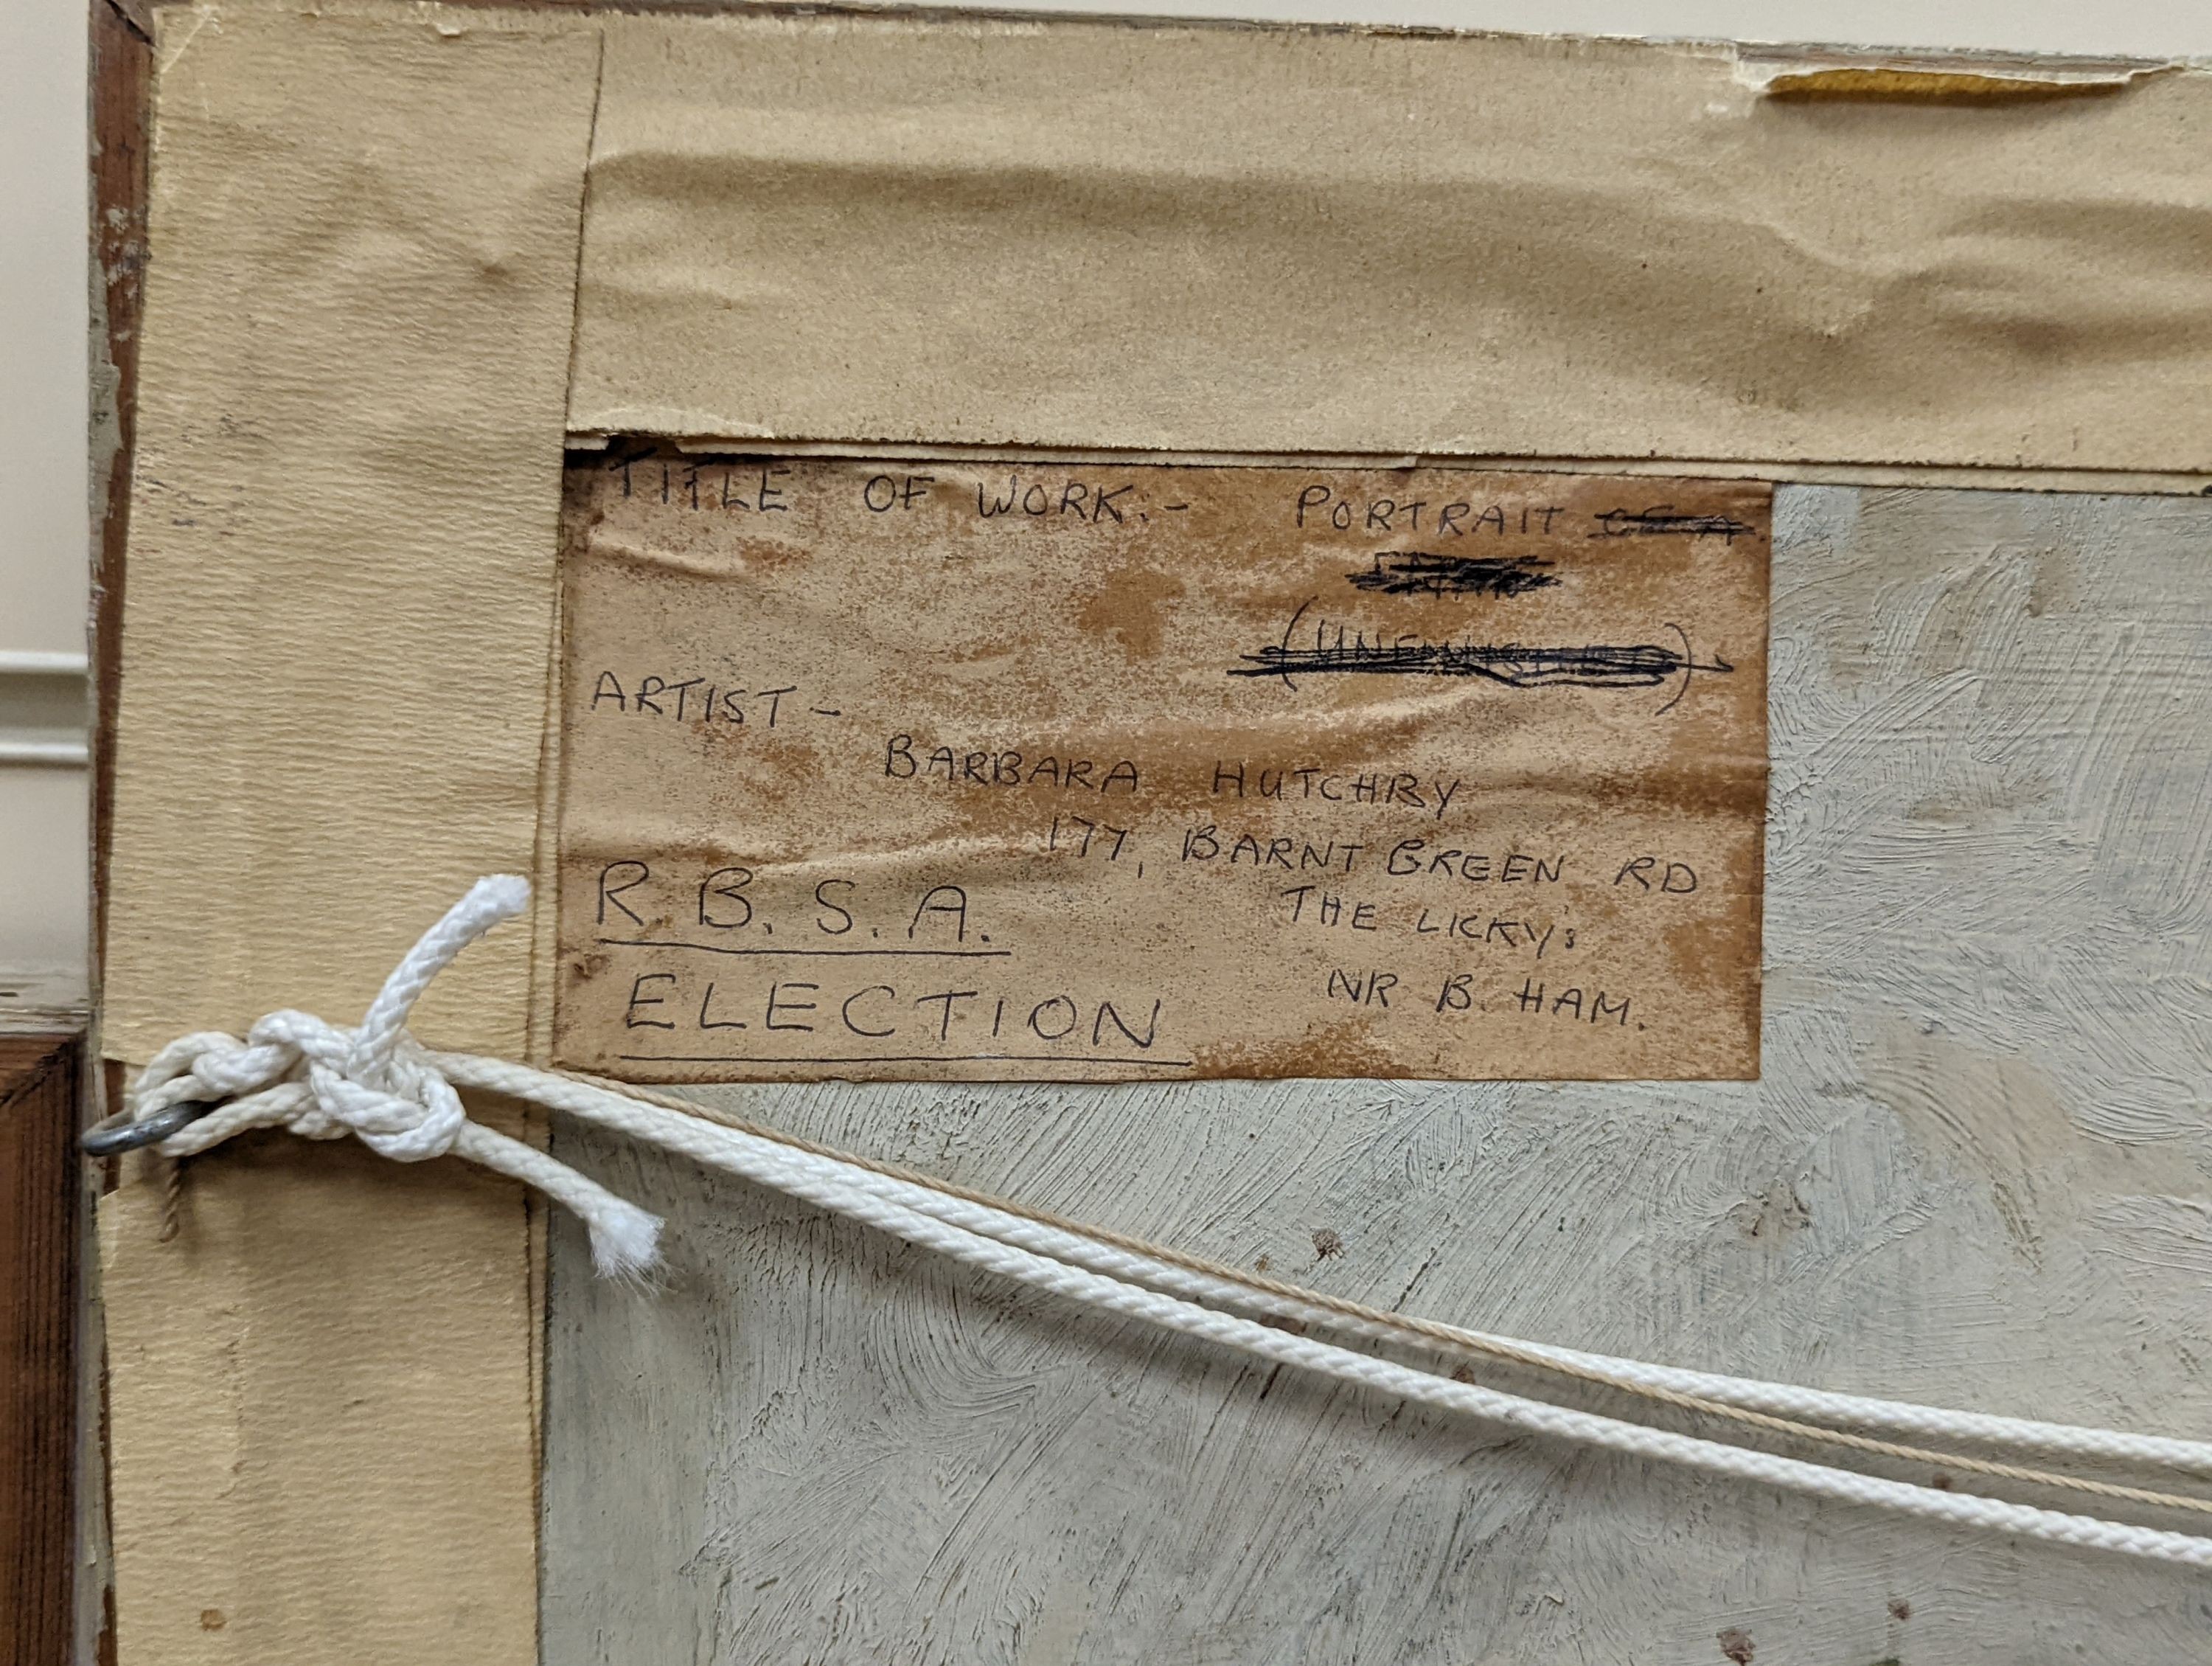 TITLE OF WORK:- PORTRAIT OF A
(UNFINISHED)
ARTIST -
BARBARA HUTCHBY
177, BARNT GREEN RD
THE LICKYS
NR B. HAM.
R. B. S. A.
ELECTION